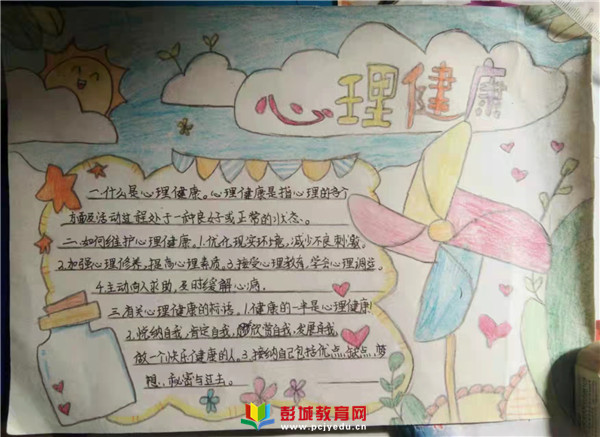 心理健康
一.什么是心理健康。心理健康是指心理的各个
方面及活动过程处于一种良好或正常的状态。
二.如何维护心理健康。1.优化现实环境,减少不良刺激。
2.加强心理修养,提高心理素质。3.接受心理教育,学会心理调适。
4.主动向人求助,及时缓解心病。
三.有关心理健康的标语。1.健康的一半是心理健康!
2.悦纳自我,肯定自我,欣赏自我,发展自我,
做一个快乐健康的人。3.接纳自己包括优点,缺点,梦
想,秘密与过去。
彭城教育网
www.pcjyedu.cn